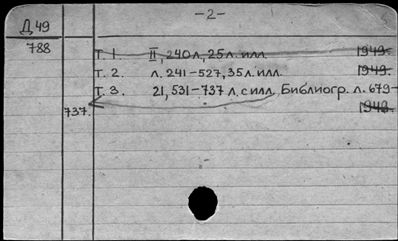 -2-
Д 49
788
Т. 1. II, 240 л, 25 л. илл. 1949.
Т. 2. л. 241-527, 35 л. илл. 1949.
Т. 3. 21, 531-737 л. с илл, Библиогр. л. 679-
737. 1949.